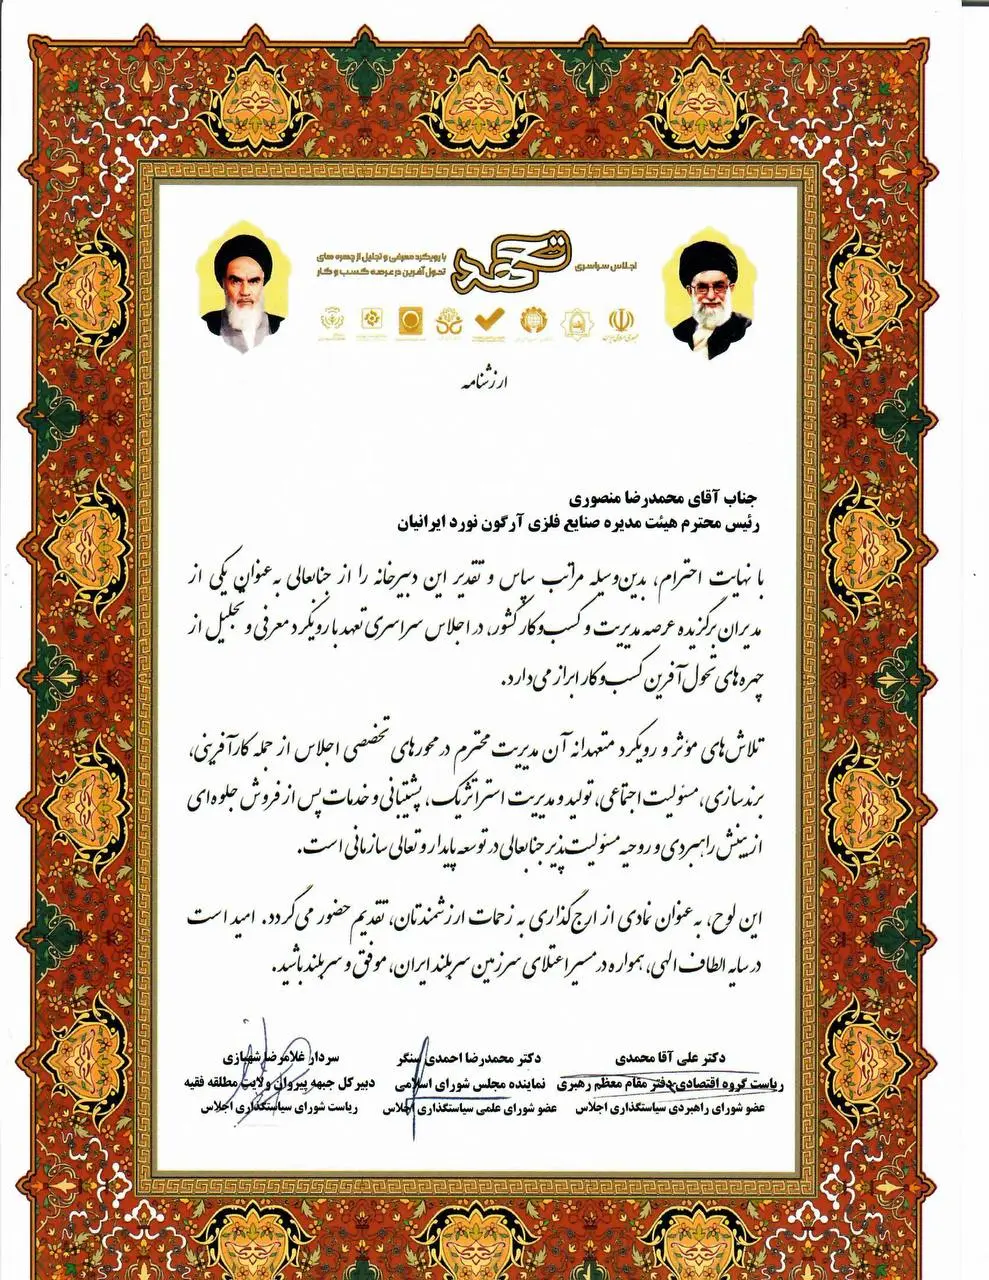 اجلاس سراسری
تعهد
با رویکرد معرفی و تجلیل از چهره های
تحول آفرین در عرصه کسب و کار
ارزشنامه
جناب آقای محمدرضا منصوری
رئیس محترم هیئت مدیره صنایع فلزی آرگون نورد ایرانیان
با نهایت احترام، بدین‌وسیله مراتب سپاس و تقدیر این دبیرخانه را از جنابعالی به‌عنوان یکی از
مدیران برگزیده عرصه مدیریت و کسب‌وکار کشور، در اجلاس سراسری تعهد با رویکرد معرفی و تجلیل از
چهره‌های تحول‌آفرین کسب‌وکار ابراز می‌دارد.
تلاش‌های مؤثر و رویکرد متعهدانه آن مدیریت محترم در محورهای تخصصی اجلاس از جمله کارآفرینی،
برندسازی، مسئولیت اجتماعی، تولید و مدیریت استراتژیک، پشتیبانی و خدمات پس از فروش جلوه‌ای
از بینش راهبردی و روحیه مسئولیت‌پذیر جنابعالی در توسعه پایدار و تعالی سازمانی است.
این لوح، به‌عنوان نمادی از ارج‌گذاری به زحمات ارزشمندتان، تقدیم حضور می‌گردد. امید است
در سایه الطاف الهی، همواره در مسیر اعتلای سرزمین سربلند ایران، موفق و سربلند باشید.
دکتر علی آقا محمدی
ریاست گروه اقتصادی دفتر مقام معظم رهبری
عضو شورای راهبردی سیاستگذاری اجلاس
دکتر محمدرضا احمدی سنگر
نماینده مجلس شورای اسلامی
عضو شورای علمی سیاستگذاری اجلاس
سردار غلامرضا شهبازی
دبیرکل جبهه پیروان ولایت مطلقه فقیه
ریاست شورای سیاستگذاری اجلاس